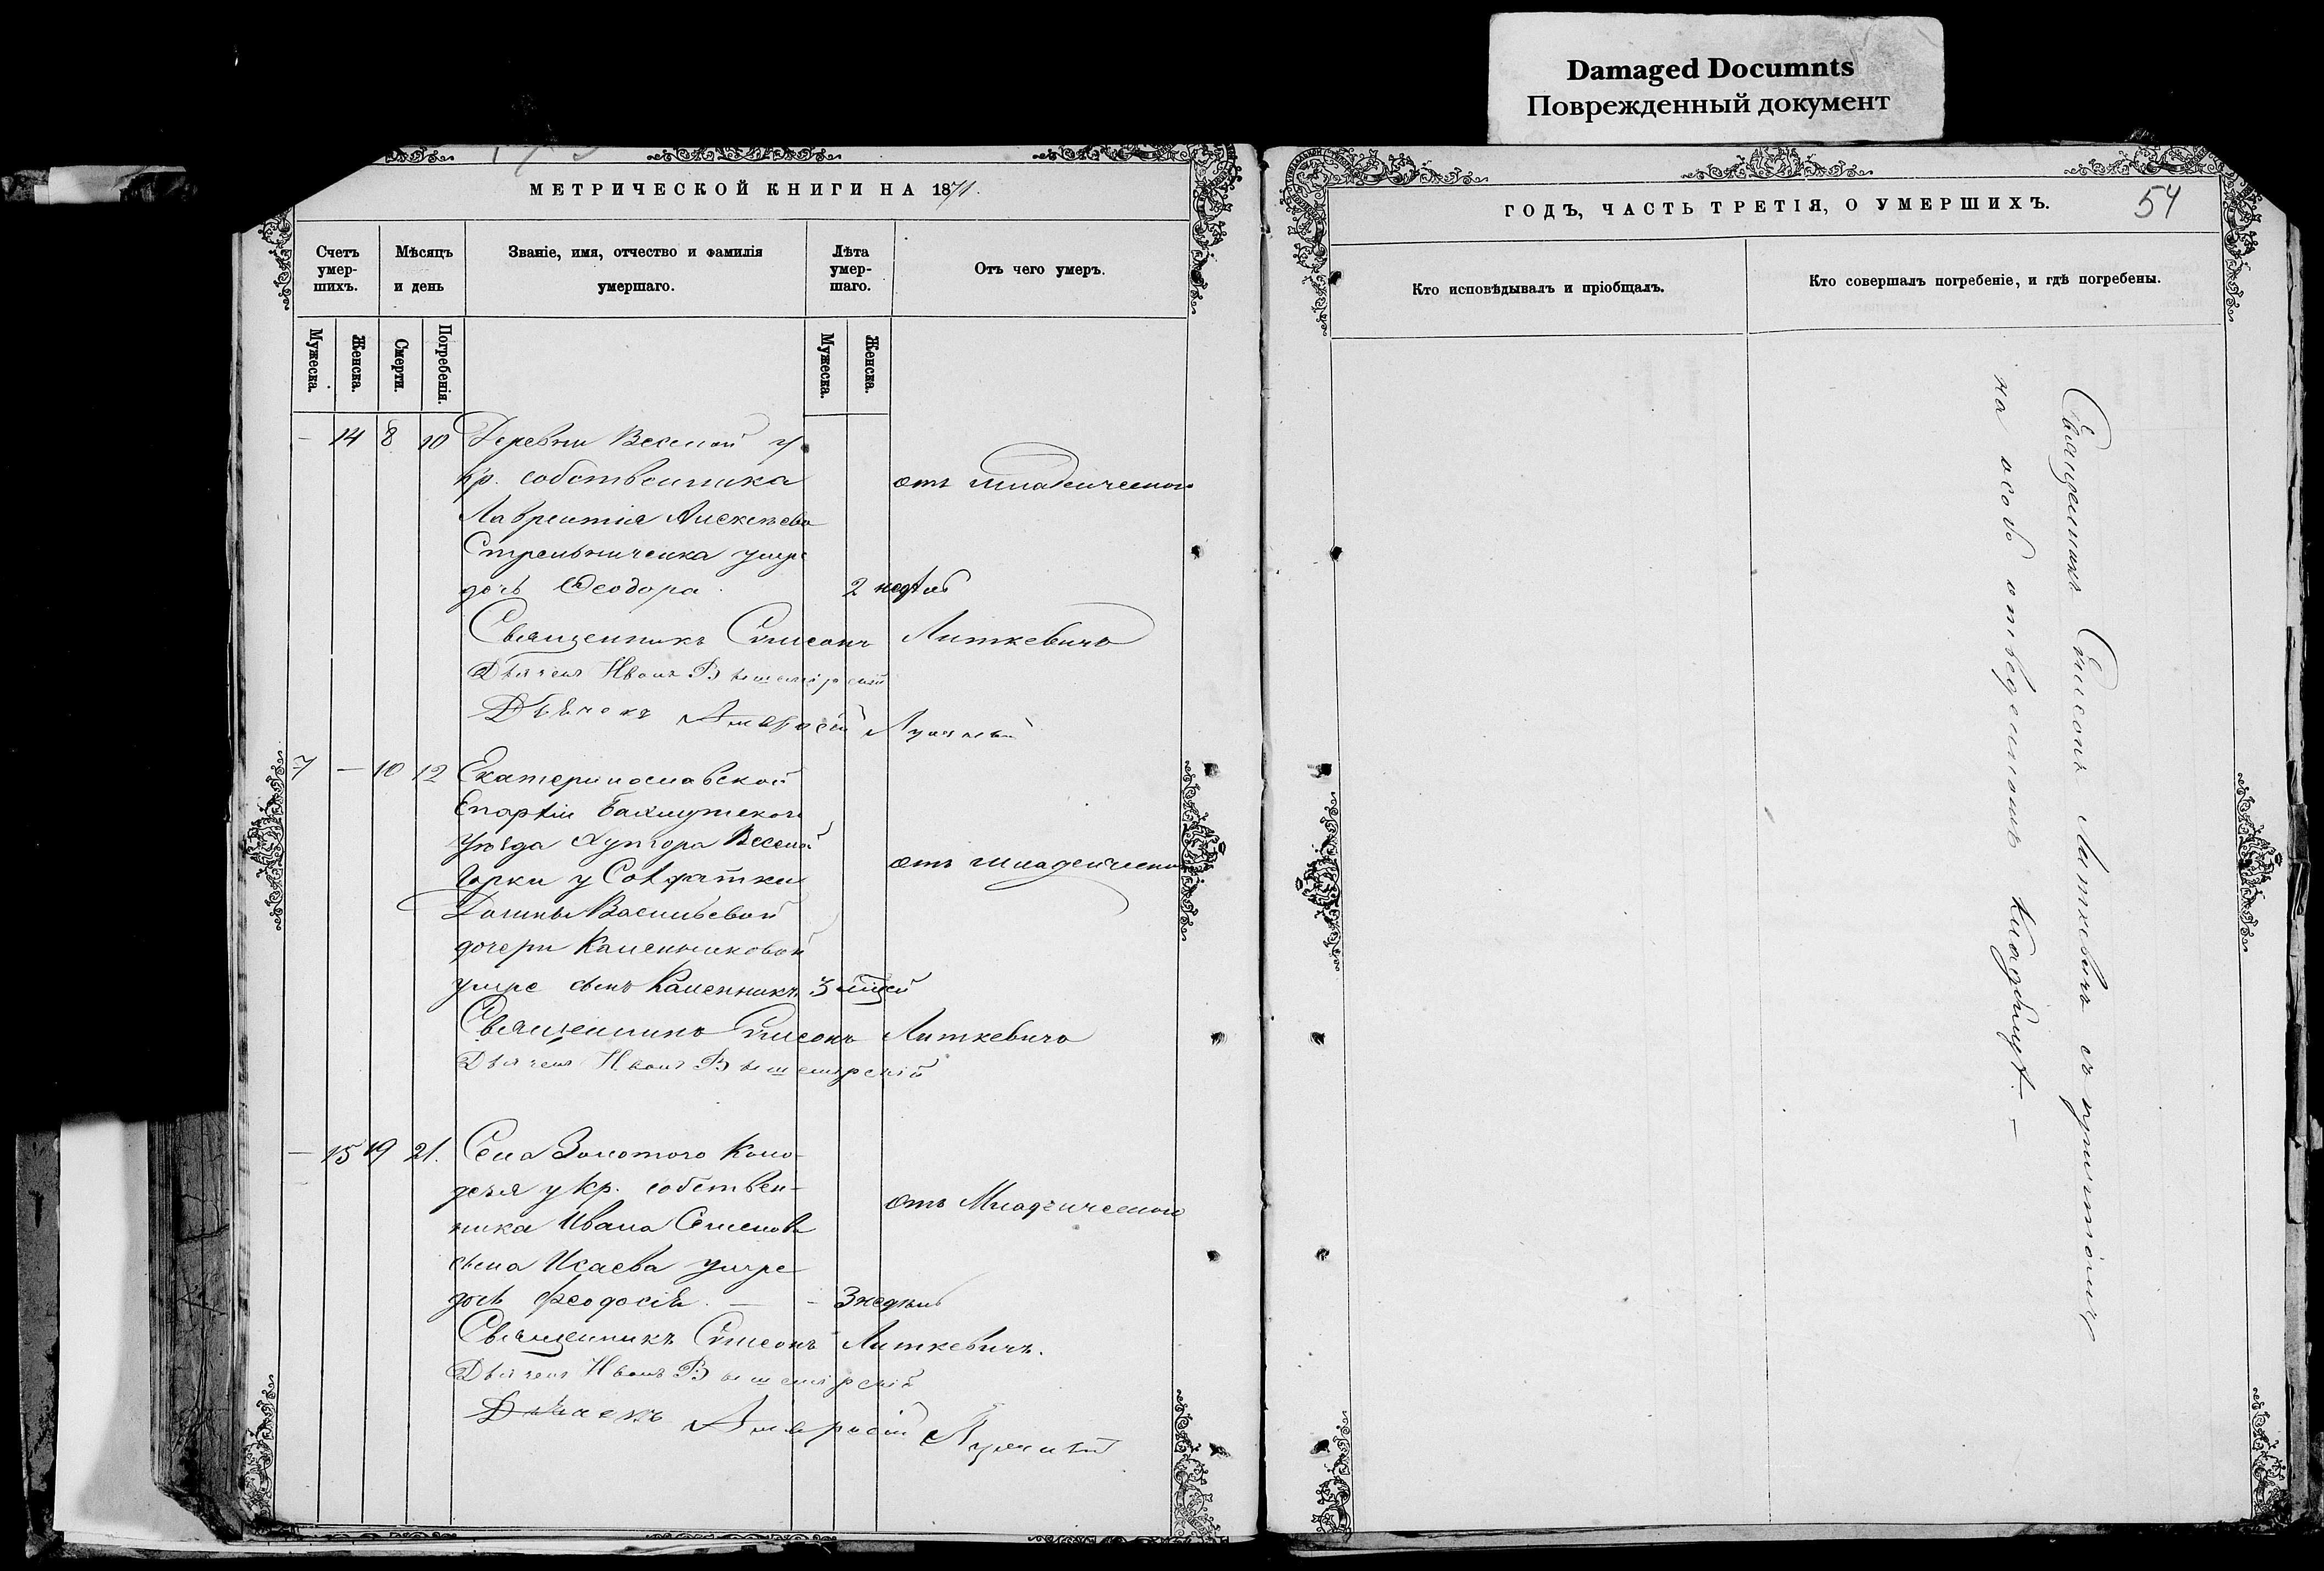 Damaged Documnts
Поврежденный документ
МЕТРИЧЕСКОЙ КНИГИ НА 1871.
Счетъ умер-шихъ.
Мѣсяцъ и день
Званіе, имя, отчество и фамилія умершаго.
Лѣта умер-шаго.
Отъ чего умеръ.
Мужеска.
Женска.
Смерти.
Погребенія.
Мужеска.
Женска.
— 14 8 10 Деревни Веселой у
кр. собственника
отъ младенческой
Лаврентія Алексѣева
Стрельниченка умре
дочь Ѳеодора. 2 недѣль
Священникъ Симеонъ Литкевичъ
Дьячекъ Иванъ
Дьячекъ Амвросій
7 — 10 12 Екатеринославской
Епархіи Бахмутскаго
уѣзда Хутора Веселой
Горки у Солдатки
отъ младенческой
Домны Васильевой
дочери Каменниковой
умре сынъ Каменникъ 3 мѣсяцей
Священникъ Симеонъ Литкевичъ
Дьячекъ Иванъ
— 15 19 21. Села Золотого Коло-
дезя у кр. собствен-
отъ Младенческой
ника Ивана Семенова
сына Исаева умре
дочь Феодосія. — - 3 недѣль
Священникъ Симеонъ Литкевичъ.
Дьячекъ Иванъ
Дьячекъ Амвросій
ГОДЪ, ЧАСТЬ ТРЕТІЯ, О УМЕРШИХЪ.
54
Кто исповѣдывалъ и пріобщалъ.
Кто совершалъ погребеніе, и гдѣ погребены.
Священникъ Симеонъ Литкевичъ съ причтомъ
на особо отведенномъ кладбищѣ. —